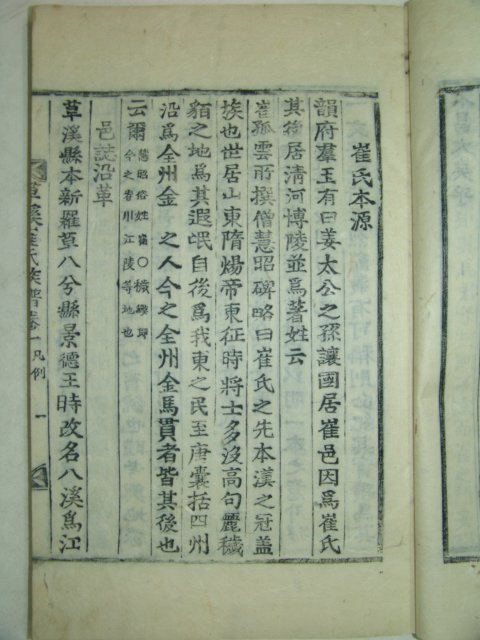 崔氏本源
韻府羣玉有曰姜太公之孫讓國居崔邑因爲崔氏
其後居清河博陵並爲著姓云
崔孤雲所撰僧慧昭碑略曰崔氏之先本漢之冠盖
族也世居山東隋煬帝東征時將士多沒高句麗穢
貊之地爲其遐氓自後爲我東之民至唐囊括四州
沿爲全州金 之人今之全州金馬貫者皆其後也
云爾 慧昭俗姓崔○穢貊即
今之春川江陵等地也
邑誌沿革
草溪縣本新羅草八兮縣景德王時改名八溪爲江
草溪崔氏族譜卷一凡例 一